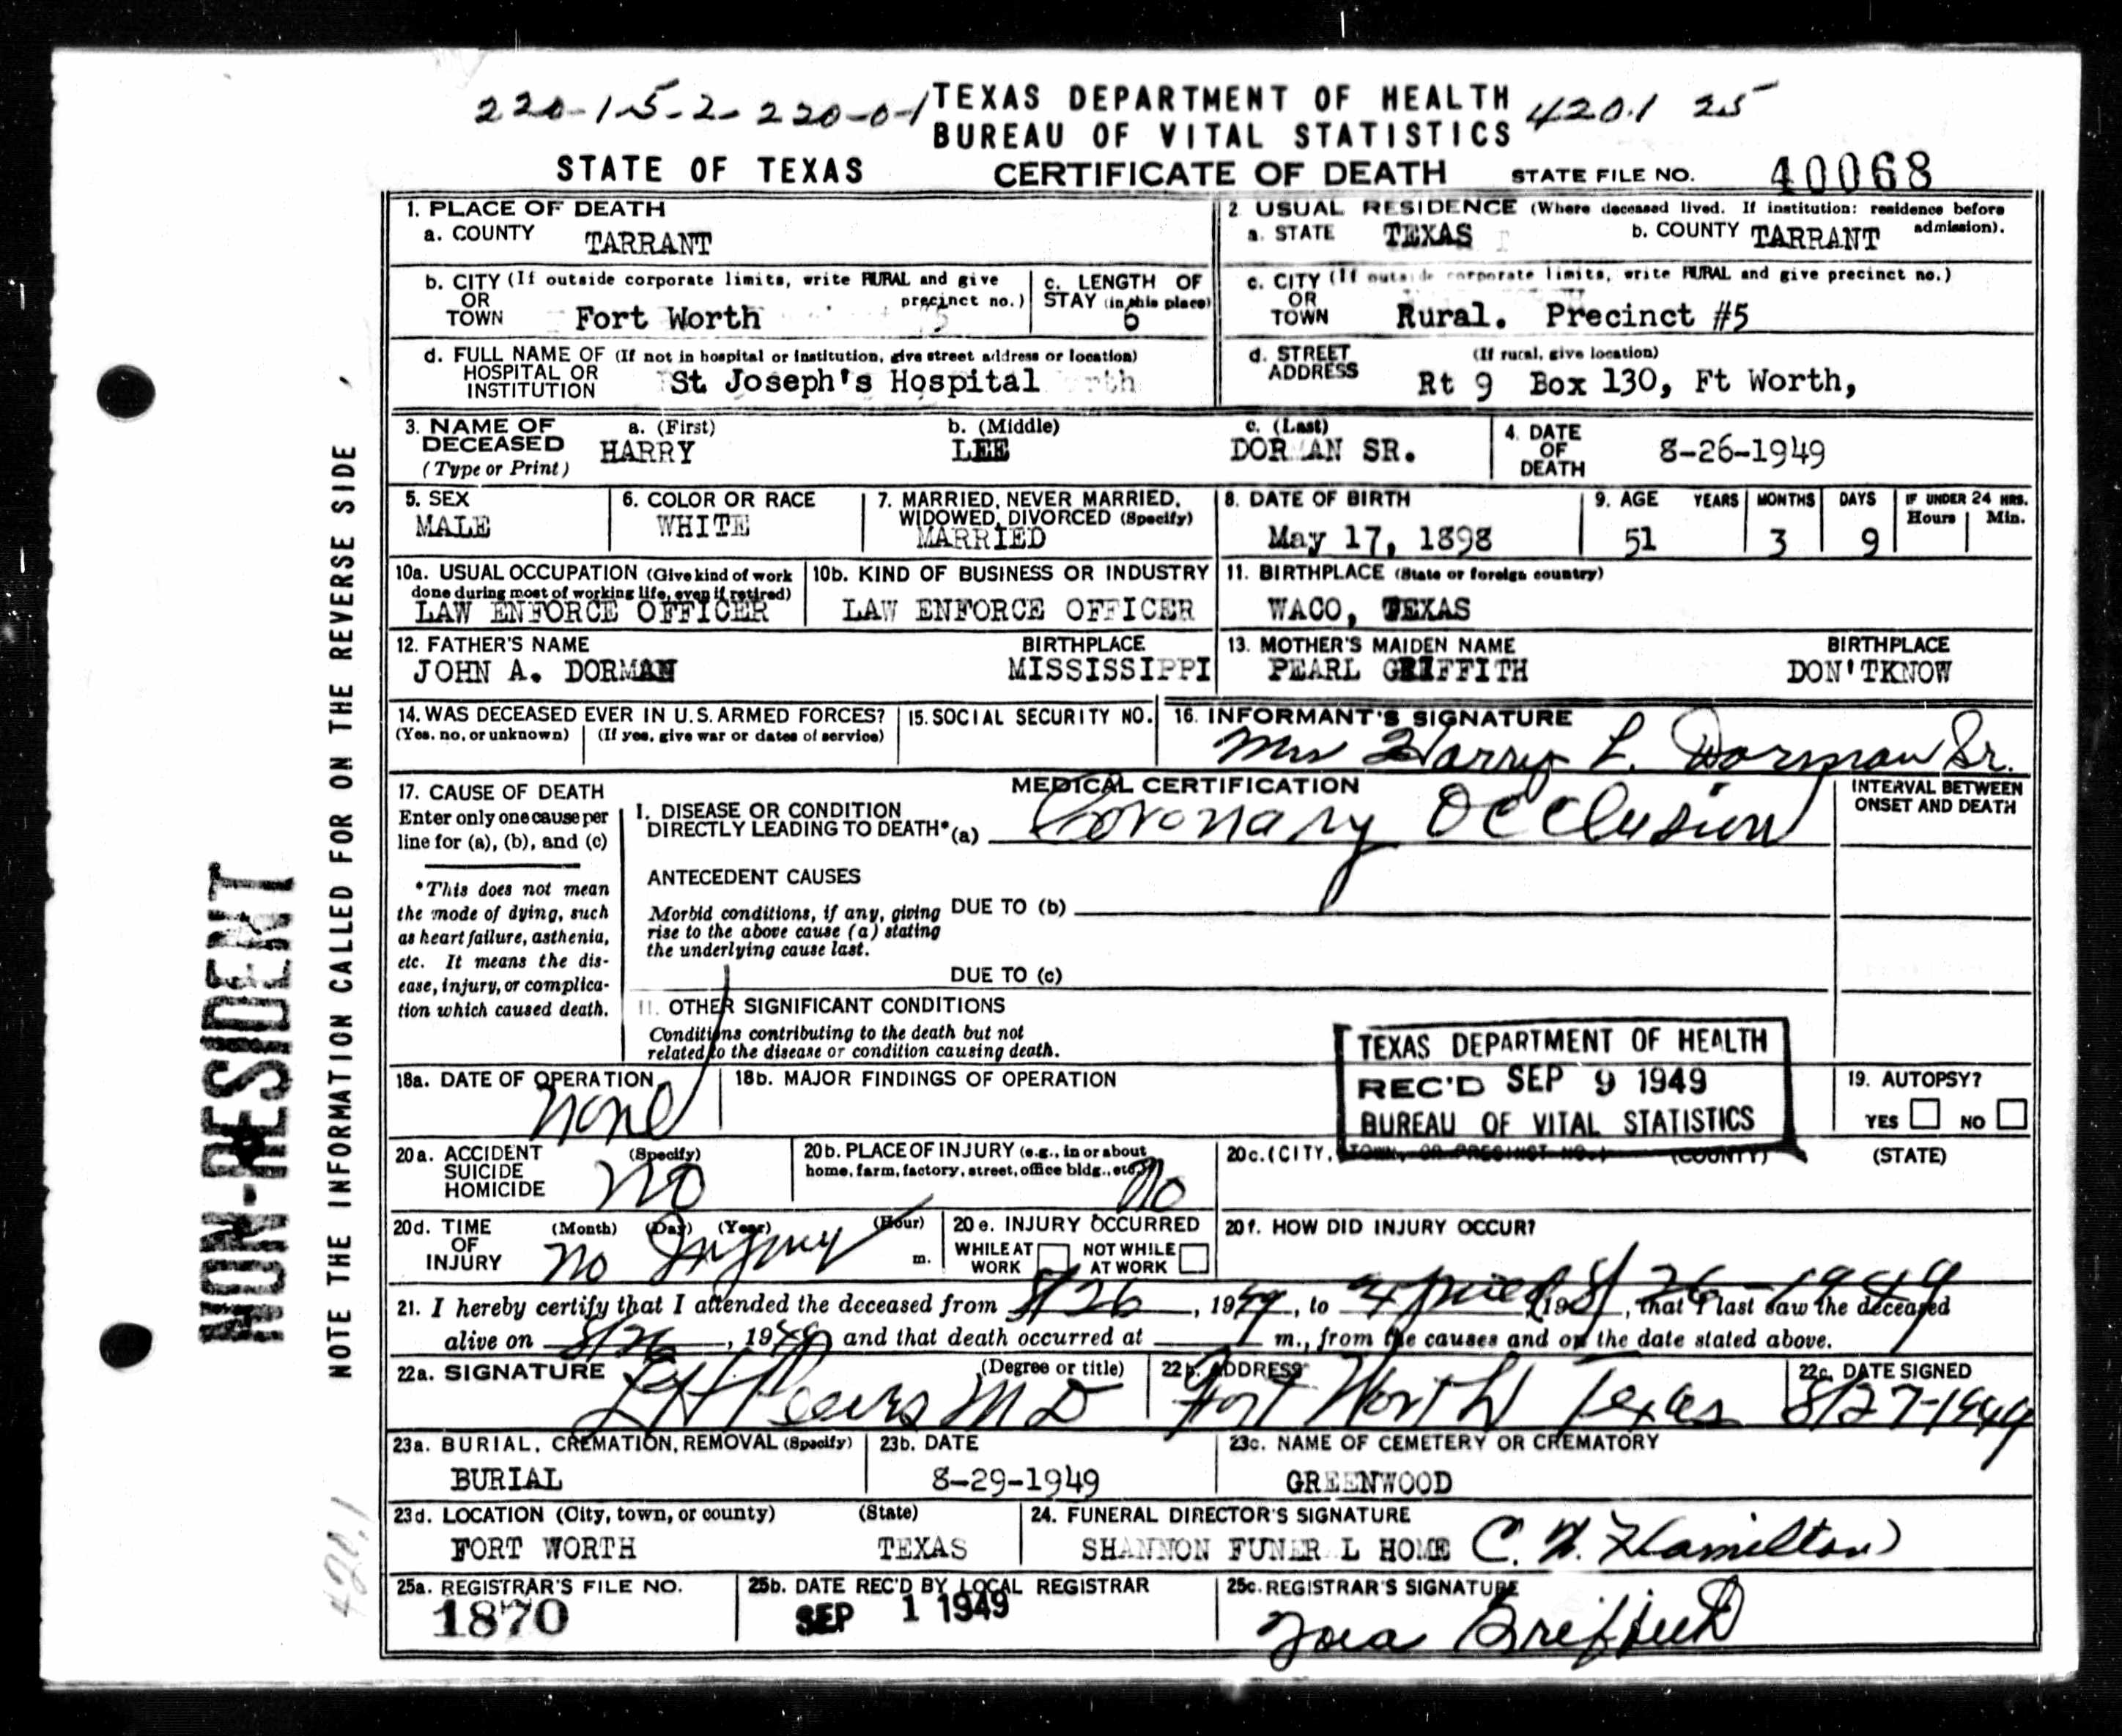 220-1-5-2- 220-0-1 TEXAS DEPARTMENT OF HEALTH 420.1 25
BUREAU OF VITAL STATISTICS
STATE OF TEXAS CERTIFICATE OF DEATH STATE FILE NO. 40068
1. PLACE OF DEATH
a. COUNTY TARRANT
2 USUAL RESIDENCE (Where deceased lived. If institution: residence before admission).
a. STATE TEXAS b. COUNTY TARRANT
b. CITY (If outside corporate limits, write RURAL and give precinct no.)
OR
TOWN Fort Worth
c. LENGTH OF
STAY (in this place)
6
c. CITY (If outside corporate limits, write RURAL and give precinct no.)
OR
TOWN Rural. Precinct #5
d. FULL NAME OF (If not in hospital or institution, give street address or location)
HOSPITAL OR
INSTITUTION St Joseph's Hospital
d. STREET (If rural, give location)
ADDRESS Rt 9 Box 130, Ft Worth,
3. NAME OF DECEASED
(Type or Print)
a. (First) HARRY
b. (Middle) LEE
c. (Last) DOR AN SR.
4. DATE OF DEATH 8-26-1949
5. SEX
MALE
6. COLOR OR RACE
WHITE
7. MARRIED, NEVER MARRIED,
WIDOWED, DIVORCED (Specify)
MARRIED
8. DATE OF BIRTH
May 17, 1898
9. AGE YEARS MONTHS DAYS IF UNDER 24 HRS.
Hours Min.
51 3 9
10a. USUAL OCCUPATION (Give kind of work
done during most of working life, even if retired)
LAW ENFORCE OFFICER
10b. KIND OF BUSINESS OR INDUSTRY
LAW ENFORCE OFFICER
11. BIRTHPLACE (State or foreign country)
WACO, TEXAS
12. FATHER'S NAME BIRTHPLACE
JOHN A. DORMAN MISSISSIPPI
13. MOTHER'S MAIDEN NAME BIRTHPLACE
PEARL GRIFFITH DON'TKNOW
14. WAS DECEASED EVER IN U.S. ARMED FORCES?
(Yes, no, or unknown) (If yes, give war or dates of service)
15. SOCIAL SECURITY NO.
16. INFORMANT'S SIGNATURE
Mrs Harry L. Dorman Sr.
17. CAUSE OF DEATH
Enter only one cause per
line for (a), (b), and (c)
*This does not mean
the mode of dying, such
as heart failure, asthenia,
etc. It means the dis-
ease, injury, or complica-
tion which caused death.
MEDICAL CERTIFICATION
I. DISEASE OR CONDITION
DIRECTLY LEADING TO DEATH* (a) Coronary Occlusion
INTERVAL BETWEEN
ONSET AND DEATH
ANTECEDENT CAUSES
Morbid conditions, if any, giving DUE TO (b)
rise to the above cause (a) stating
the underlying cause last.
DUE TO (c)
II. OTHER SIGNIFICANT CONDITIONS
Conditions contributing to the death but not
related to the disease or condition causing death.
TEXAS DEPARTMENT OF HEALTH
REC'D SEP 9 1949
BUREAU OF VITAL STATISTICS
18a. DATE OF OPERATION
none
18b. MAJOR FINDINGS OF OPERATION
19. AUTOPSY?
YES NO
20a. ACCIDENT (Specify)
SUICIDE
HOMICIDE
no
20b. PLACE OF INJURY (e.g., in or about
home, farm, factory, street, office bldg., etc.)
no
20c. (CITY, TOWN, OR PRECINCT NO.) (COUNTY) (STATE)
20d. TIME OF INJURY
(Month) (Day) (Year) (Hour)
no Injury m.
20e. INJURY OCCURRED
WHILE AT WORK NOT WHILE AT WORK
20f. HOW DID INJURY OCCUR?
21. I hereby certify that I attended the deceased from 8/26, 1949, to 8/26-1949, 19, that I last saw the deceased
alive on 8/26, 1949 and that death occurred at m., from the causes and on the date stated above.
22a. SIGNATURE (Degree or title)
MD
22b. ADDRESS
Fort Worth Texas
22c. DATE SIGNED
8/27-1949
23a. BURIAL, CREMATION, REMOVAL (Specify)
BURIAL
23b. DATE
8-29-1949
23c. NAME OF CEMETERY OR CREMATORY
GREENWOOD
23d. LOCATION (City, town, or county) (State)
FORT WORTH TEXAS
24. FUNERAL DIRECTOR'S SIGNATURE
SHANNON FUNER L HOME C. W. Hamilton
25a. REGISTRAR'S FILE NO.
1870
25b. DATE REC'D BY LOCAL REGISTRAR
SEP 1 1949
25c. REGISTRAR'S SIGNATURE
Griffith
NON-RESIDENT
NOTE THE INFORMATION CALLED FOR ON THE REVERSE SIDE
420.1